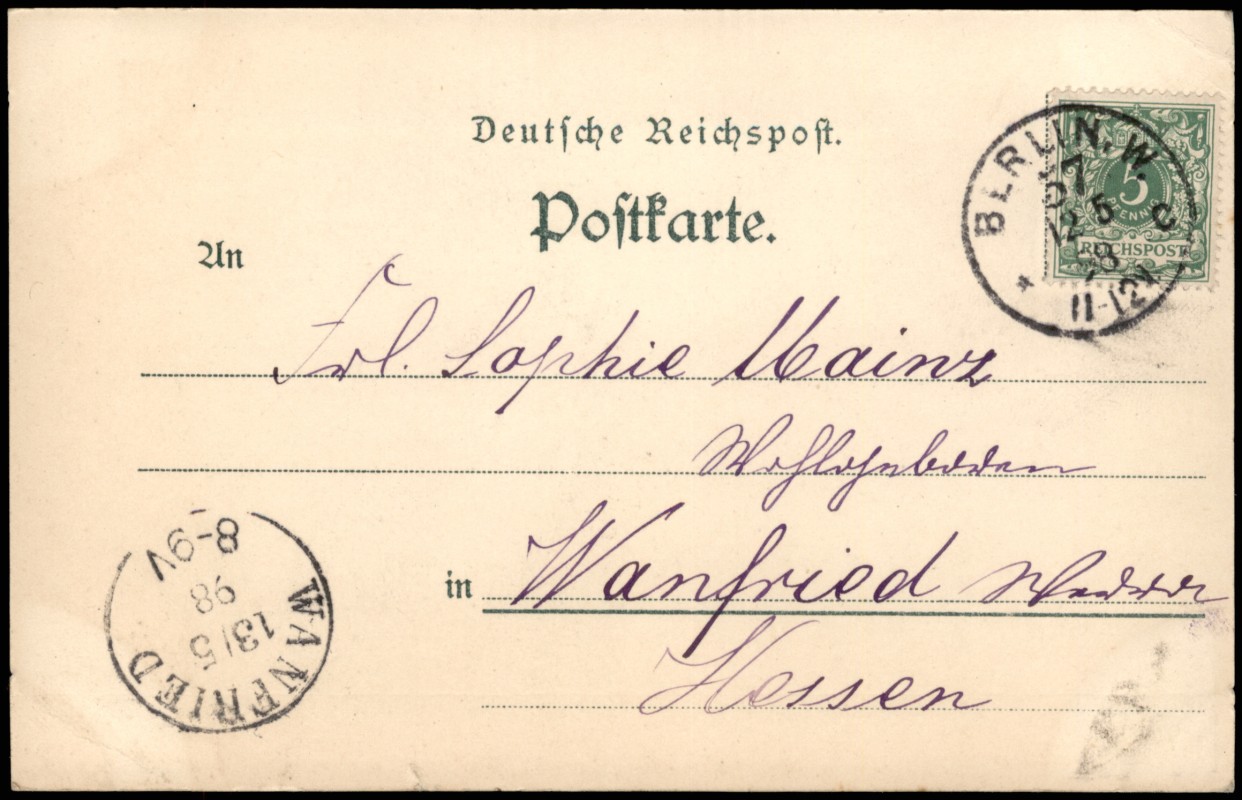 Deutsche Reichspost.
Postkarte.
An
Frl. Sophie Mainz
in Wanfried Werra
Hessen
BERLIN, W.
57
12 5
98
11-12V
C
5
PFENNIG
REICHSPOST
WANFRIED
13/5
98
8-9V